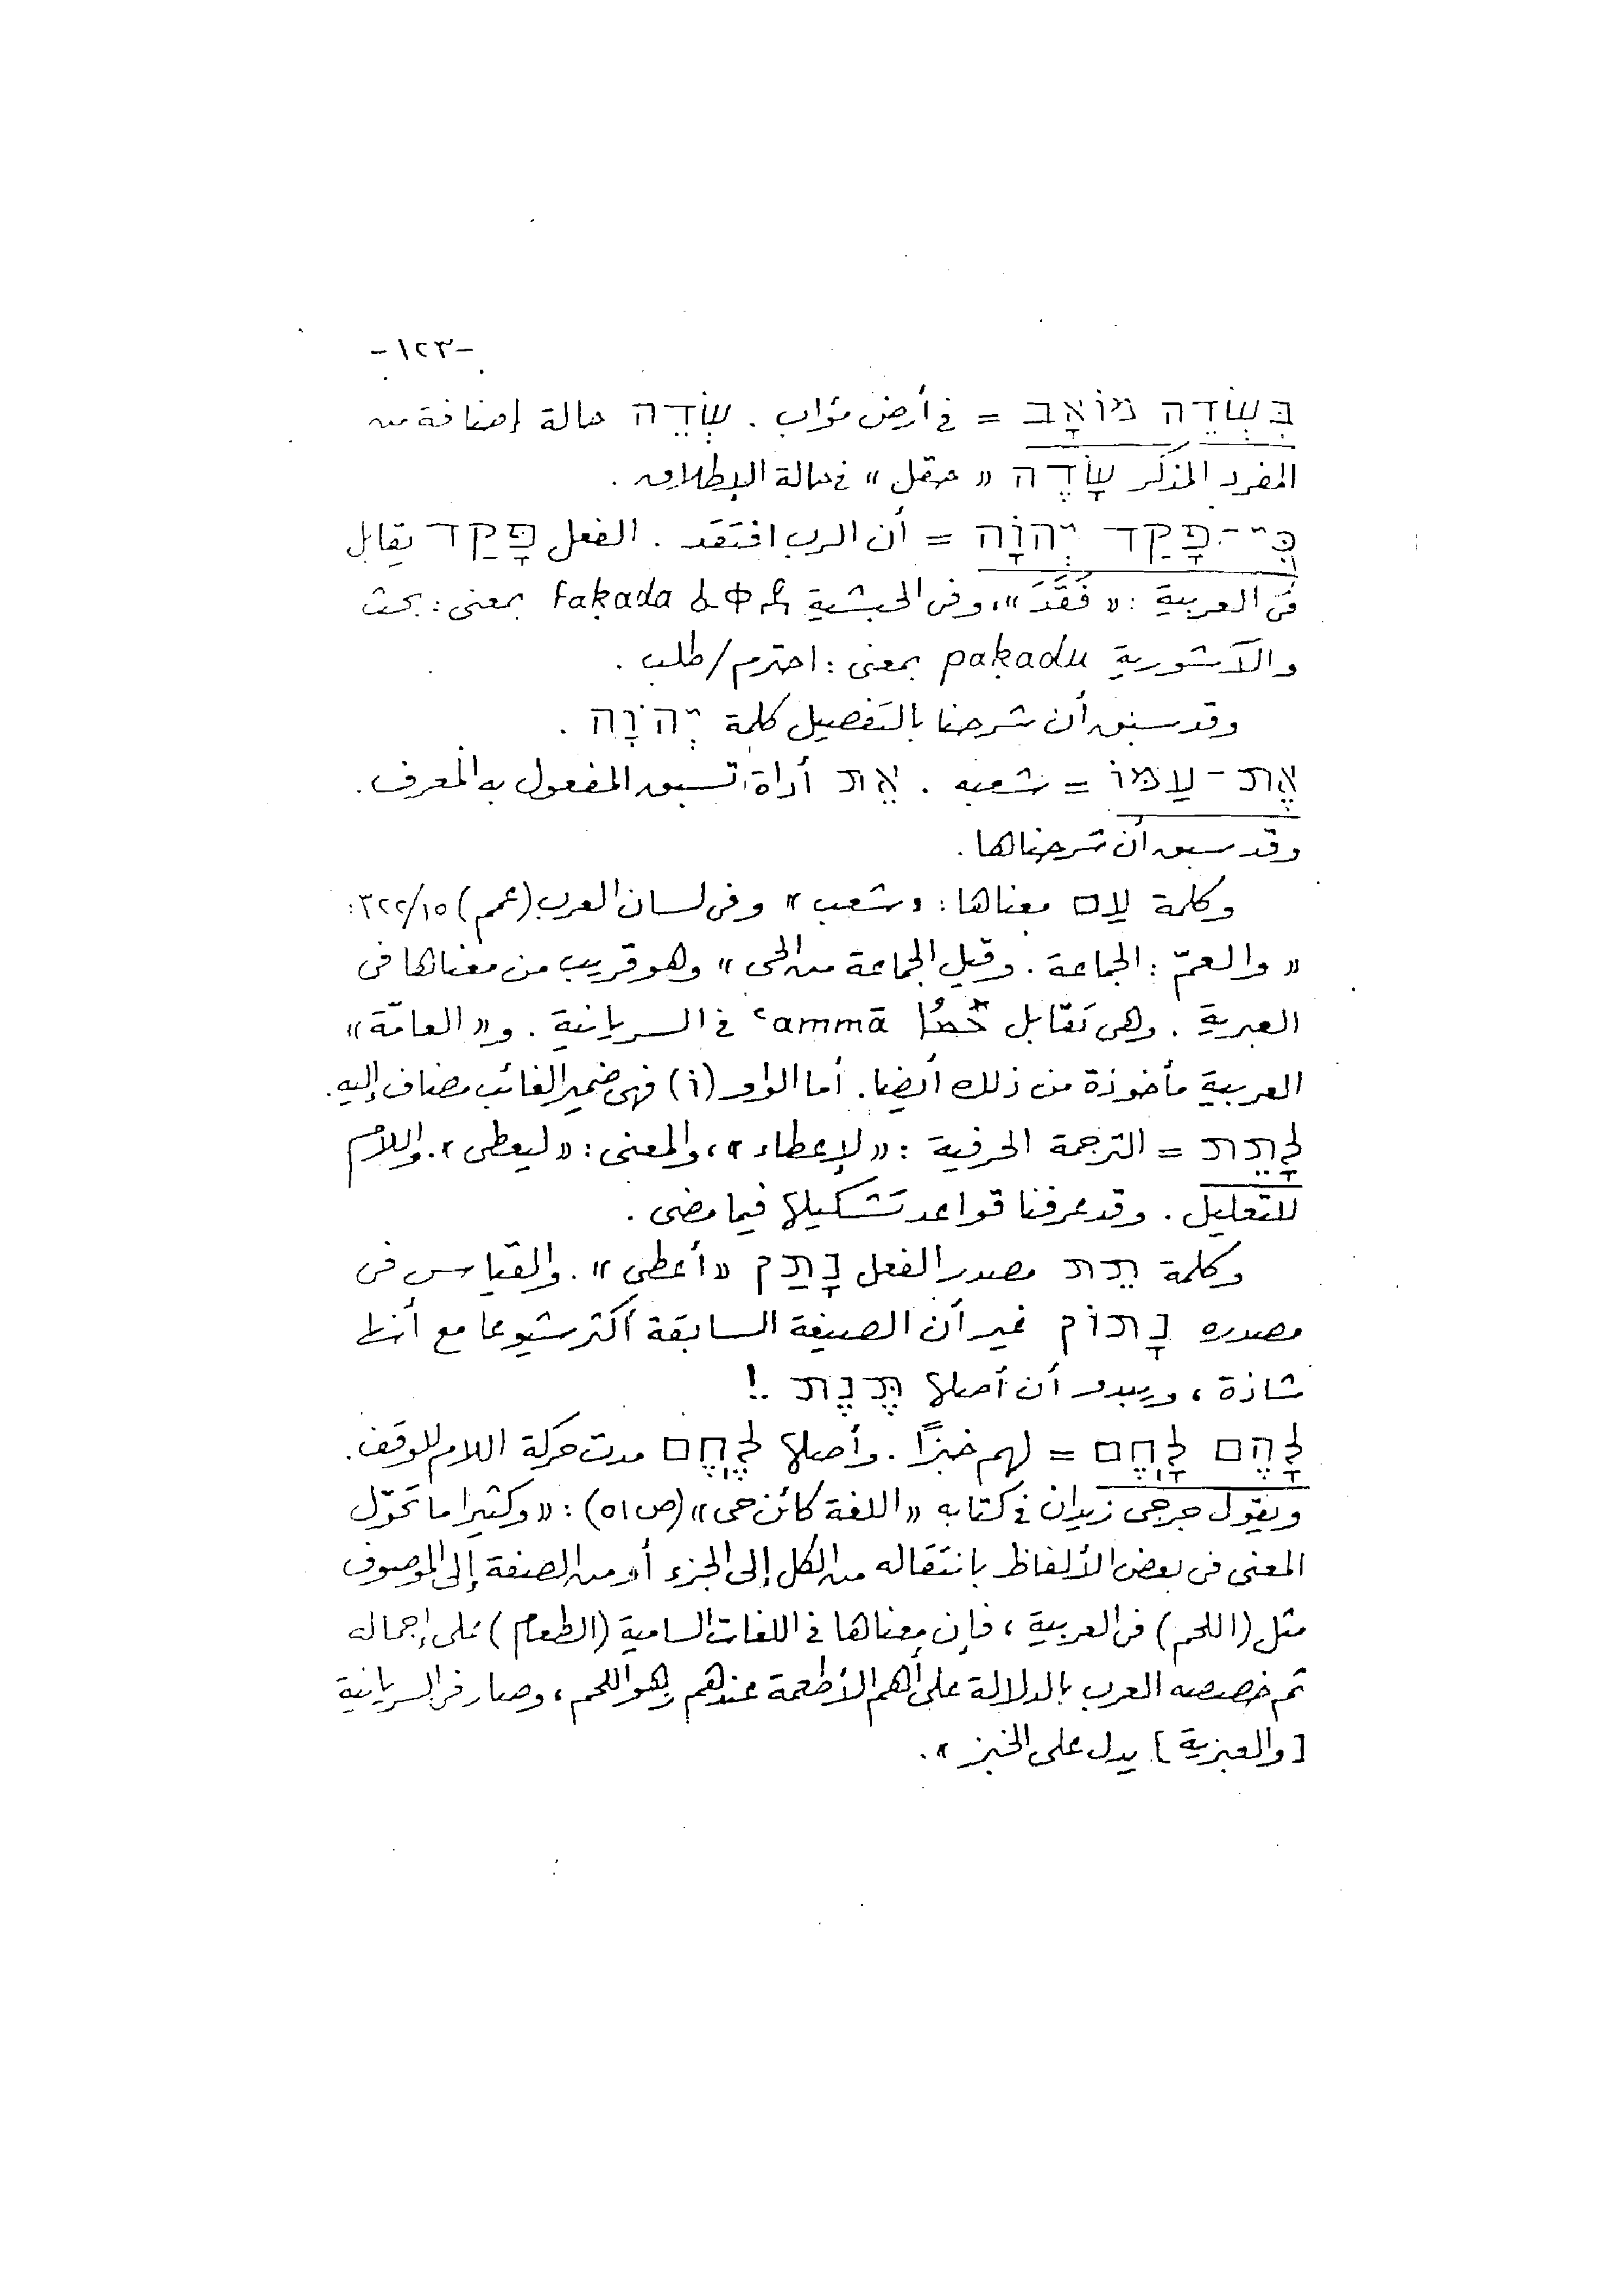 -١٢٣-
בִּשְׂדֵה מוֹאָב = فى أرض مؤاب . שְׂדֵה حالة إضافة من
المفرد المذكر שָׂדֶה « حقل » فى حالة الإطلاق .
כִּי־פָקַד יְהוָֹה = أن الرب افتقد . الفعل פָּקַד يقابل
فى العربية : « فَقَّدَ »، وفى الحبشية ፈቀደ faḳada بمعنى : بحث
والآشورية paḳadu بمعنى : احترم/طلب .
وقد سبق أن شرحنا بالتفصيل كلمة יְהוָֹה .
אֶת־עַמּוֹ = شعبه . אֵת أداة تسبق المفعول به المعرف .
وقد سبق أن شرحناها .
وكلمة עַם معناها : « شعب » وفى لسان العرب (عمم) ٣٢٢/١٥ :
« والعمّ : الجماعة . وقيل الجماعة من الحى » وهو قريب من معناها فى
العبرية . وهى تقابل ܥܰܡܳܐ ʿammā فى السريانية . و« العامّة »
العربية مأخوذة من ذلك أيضا . أما الواو (וֹ) فهى ضمير الغائب مضاف إليه .
לָתֵת = الترجمة الحرفية : « لإعطاء »، والمعنى : « ليعطى » . واللام
للتعليل . وقد عرفنا قواعد تشكيلها فيما مضى .
وكلمة תֵת مصدر الفعل נָתַן « أعطى » . والقياس فى
مصدره נָתוֹן غير أن الصيغة السابقة أكثر شيوعا مع أنها
شاذة ، ويبدو أن أصلها תֶּנֶת ..!
לָהֶם לָחֶם = لهم خبزًا . وأصلها לֶחֶם مدت حركة اللام للوقف .
ويقول جرجى زيدان فى كتابه « اللغة كائن حى » (ص ٥١) : « وكثيرا ما تحوّل
المعنى فى بعض الألفاظ بانتقاله من الكل إلى الجزء أو من الصفة إلى الموصوف
مثل (اللحم) فى العربية ، فإن معناها فى اللغات السامية (الطعام) على إجماله
ثم خصصه العرب بالدلالة على أهم الأطعمة عندهم وهو اللحم ، وصار فى السريانية
[والعبرية] يدل على الخبز » .